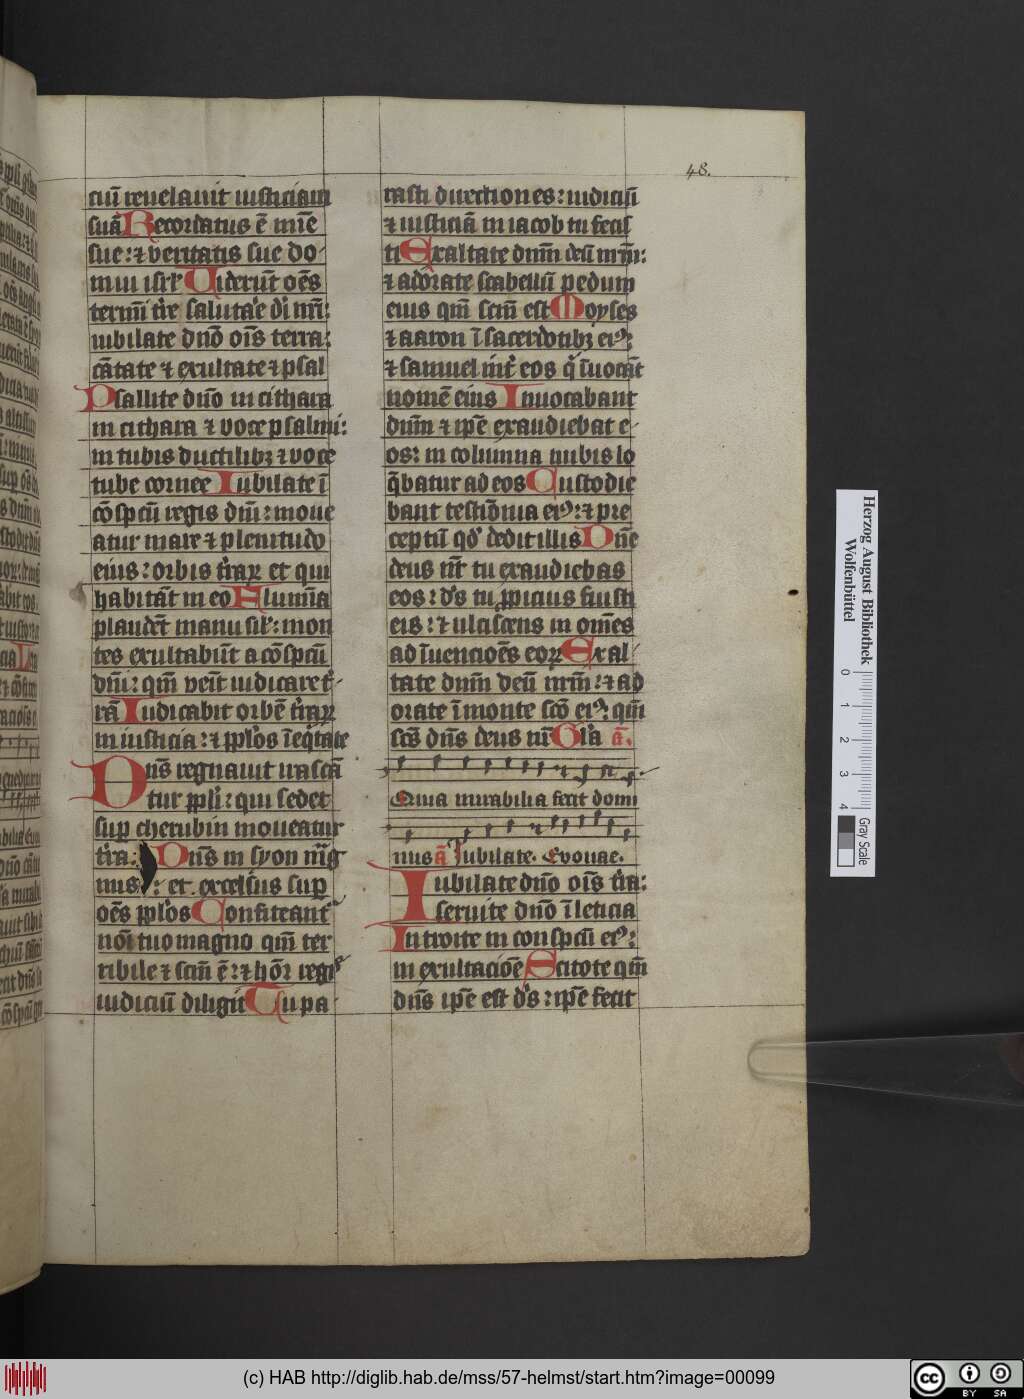 48.
ciū reuelauit iusticiam
suā Recordatus ē m̄ie
sue: ⁊ veritatis sue do-
mui isrl̄ Uiderūt oēs
termī t̄re salutāe dī nr̄i:
iubilate dn̄o oīs terra:
cātate ⁊ exultate ⁊ psal
Psallite dn̄o in cithara
in cithara ⁊ voce psalmi:
in tubis ductilibꝫ ⁊ voce
tube cornee Iubilate ī
cōspcū regis dn̄i: moue
atur mare ⁊ plenitudo
eius: orbis t̄raꝝ et qui
habitāt in eo Flumīa
plaudēt manu sil̄: mon
tes exultabūt a cōspcū
dn̄i: qm̄ veīt iudicare t̄-
rā Iudicabit orbē t̄raꝝ
in iusticia: ⁊ ppl̄os ī eq̄tate
Dn̄s regnauit irascā
tur ppl̄i: qui sedet
sup̄ cherubin moueatur
t̄ra: Dn̄s in syon mag̅
nus: et excelsus sup̄
oēs ppl̄os Confiteant̄
nōi tuo magno qm̄ ter
ribile ⁊ scm̄ ē: ⁊ hōꝛ regꝭ
iudiciū diligit Tu pa-
rasti directiones: iudiciū
⁊ iusticiā in iacob tu fecis
ti Exaltate dn̄m deū nr̄m:
⁊ adorate scabellū pedum
eius qm̄ scm̄ est Moyses
⁊ aaron ī sacerdotibꝫ eiꝰ:
⁊ samuel int̄ eos q̄ īuocāt
nomē eius Inuocabant
dn̄m ⁊ ip̄e exaudiebat e-
os: in columna nubis lo
q̄batur ad eos Custodie
bant testīonia eiꝰ: ⁊ pre
ceptū qd̄ dedit illis Dn̄e
deus nr̄ tu exaudiebas
eos: dš tu ꝓpicius fuisti
eis: ⁊ ulciscens in omēs
ad īuencioēs eoꝝ Exal-
tate dn̄m deū nr̄m: ⁊ ad
orate ī monte scō eiꝰ: qm̄
scs̄ dn̄s deus nr̄ Gl̄a ā.
Quia mirabilia fecit domi
nus ā Iubilate. Evouae.
Iubilate dn̄o oīs t̄ra:
seruite dn̄o ī leticia
Introite in conspcū eiꝰ:
in exultacioē Scitote qm̄
dn̄s ip̄e est dš: ip̄e fecit
Herzog August Bibliothek
Wolfenbüttel
0 1 2 3 4
Gray Scale
(c) HAB http://diglib.hab.de/mss/57-helmst/start.htm?image=00099
cc BY SA